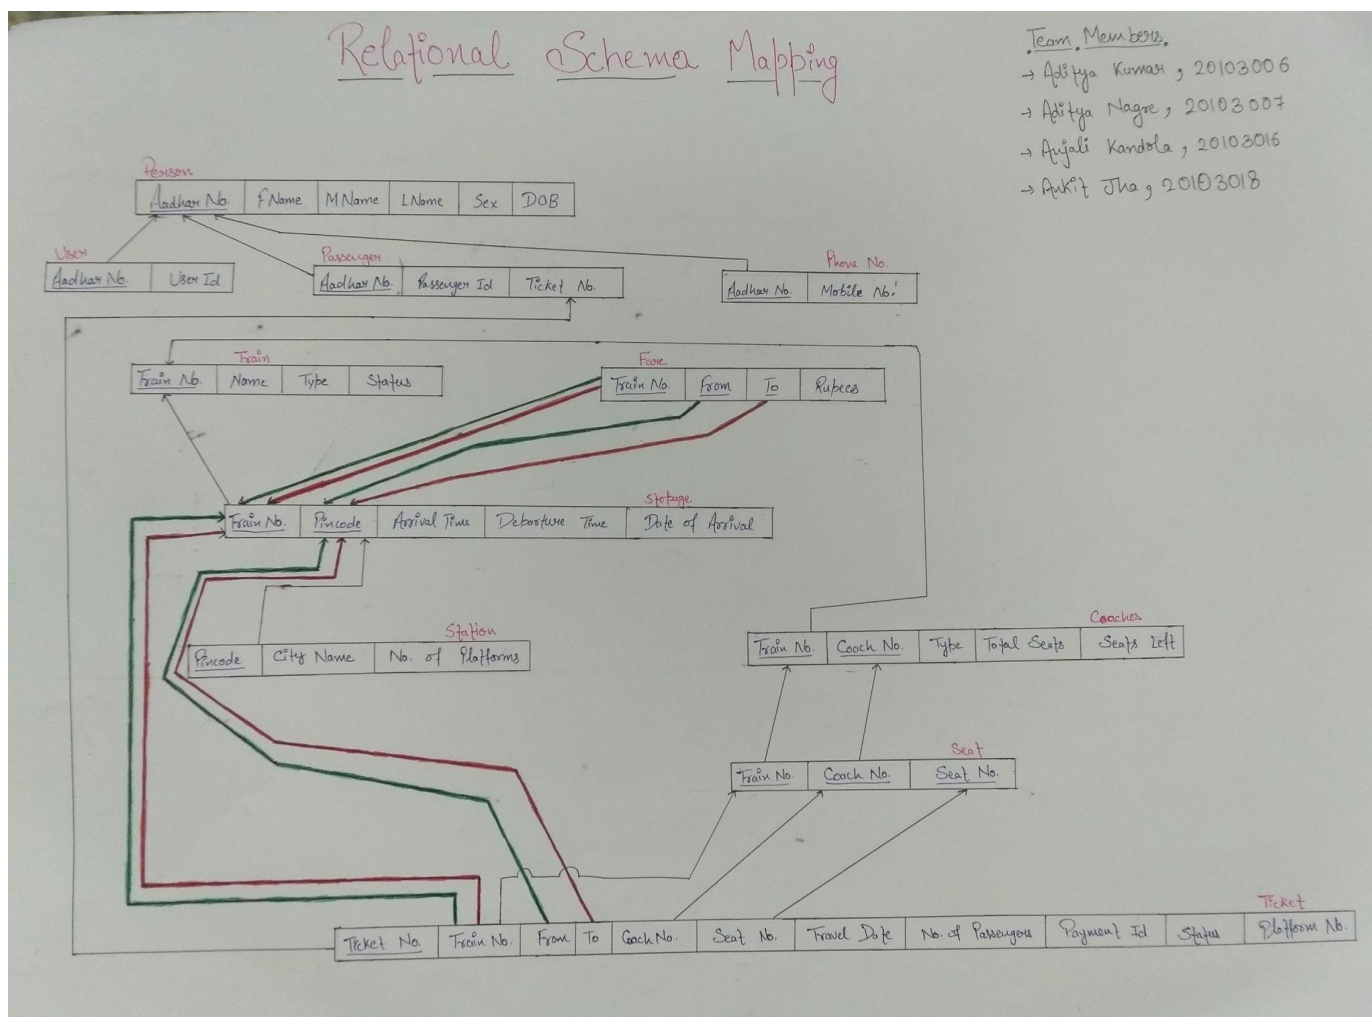 Relational Schema Mapping
Team Members
→ Aditya Kumar, 20103006
→ Aditya Nagre, 20103007
→ Anjali Kandola, 20103016
→ Ankit Jha, 20103018
Person
Aadhar No. FName MName LName Sex DOB
User
Aadhar No. User Id
Passenger
Aadhar No. Passenger Id Ticket No.
Phone No.
Aadhar No. Mobile No.
Train
Train No. Name Type Status
Fare
Train No. From To Rupees
Stopage
Train No. Pincode Arrival Time Departure Time Date of Arrival
Station
Pincode City Name No. of Platforms
Coaches
Train No. Coach No. Type Total Seats Seats Left
Seat
Train No. Coach No. Seat No.
Ticket
Ticket No. Train No. From To Coach No. Seat No. Travel Date No. of Passengers Payment Id Status Platform No.